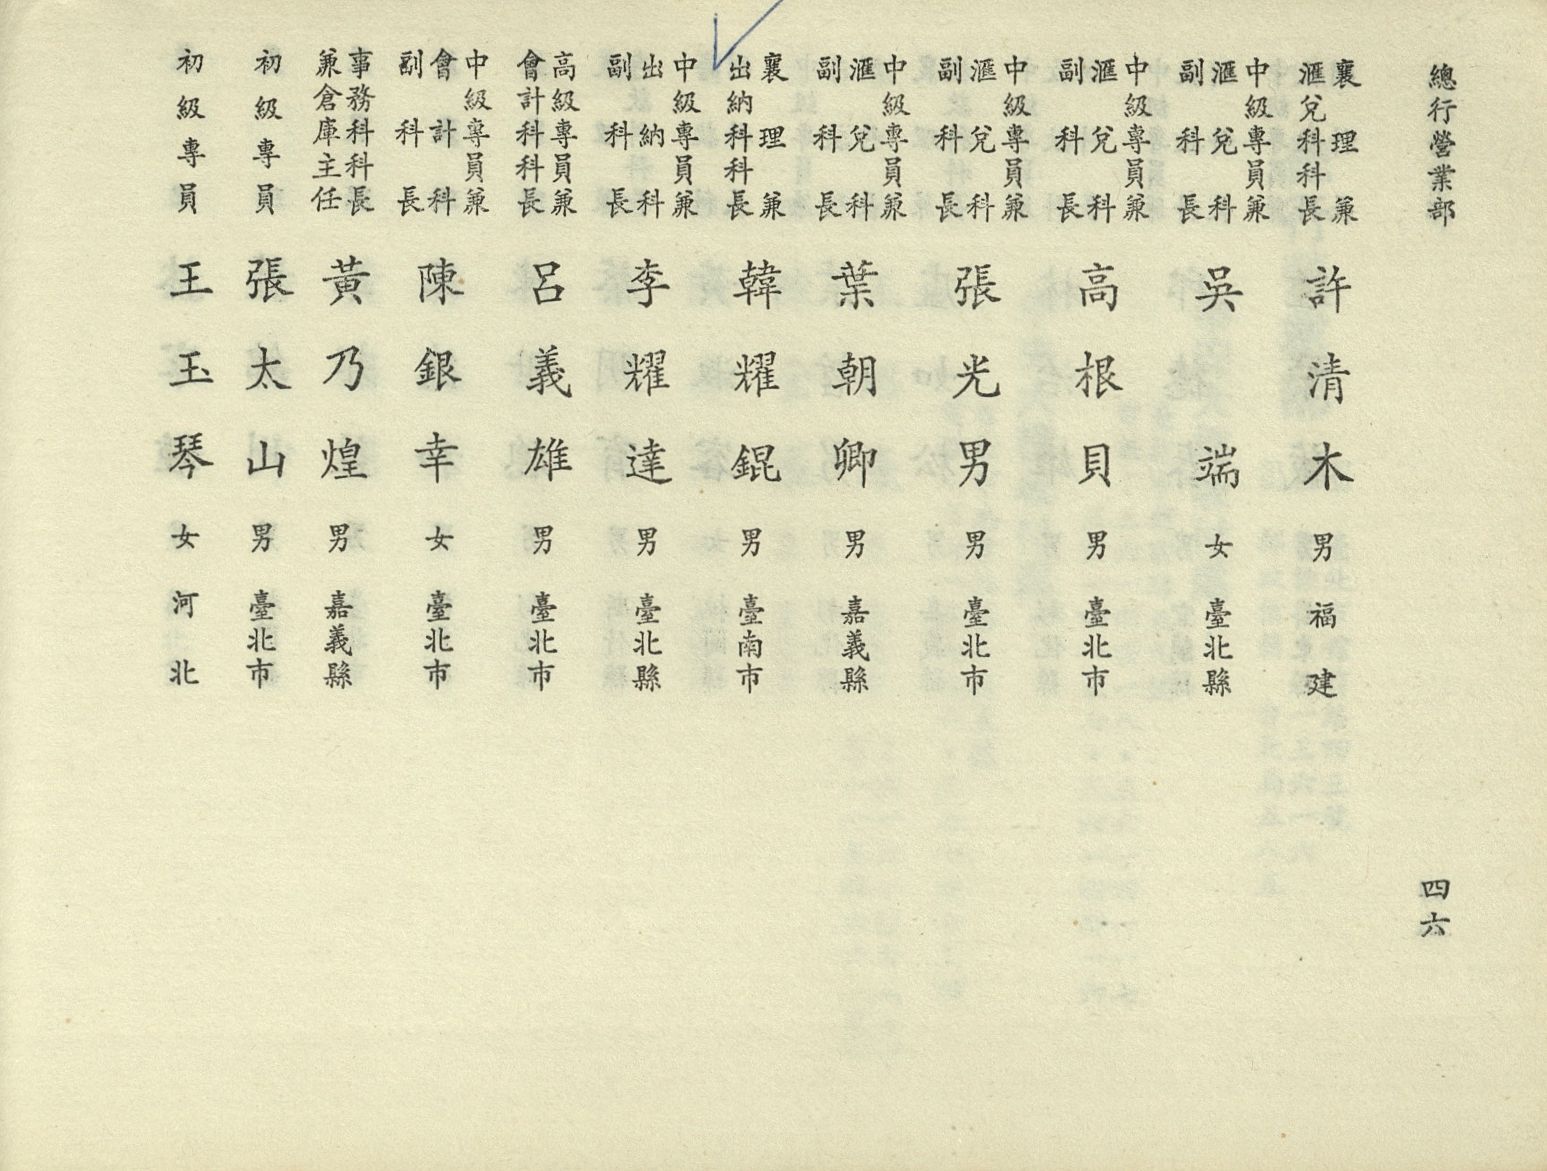 總行營業部
襄理兼
滙兌科科長
許清木 男 福建
中級專員兼
滙兌科
副科長
吳端 女 臺北縣
中級專員兼
滙兌科
副科長
高根貝 男 臺北市
中級專員兼
滙兌科
副科長
張光男 男 臺北市
中級專員兼
滙兌科
副科長
葉朝卿 男 嘉義縣
襄理兼
出納科科長
韓耀錕 男 臺南市
中級專員兼
出納科
副科長
李耀達 男 臺北縣
高級專員兼
會計科科長
呂義雄 男 臺北市
中級專員兼
會計科
副科長
陳銀幸 女 臺北市
事務科科長
兼倉庫主任
黃乃煌 男 嘉義縣
初級專員
張太山 男 臺北市
初級專員
王玉琴 女 河北
四六